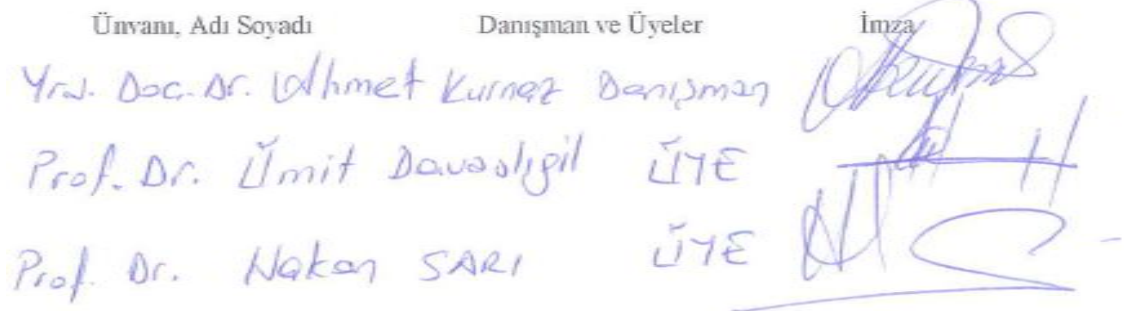 Ünvanı, Adı Soyadı Danışman ve Üyeler İmza
Yrd. Doc. Dr. Ahmet Kurnaz Danışman
Prof. Dr. Ümit Davaslıgil ÜYE
Prof. Dr. Hakan SARI ÜYE